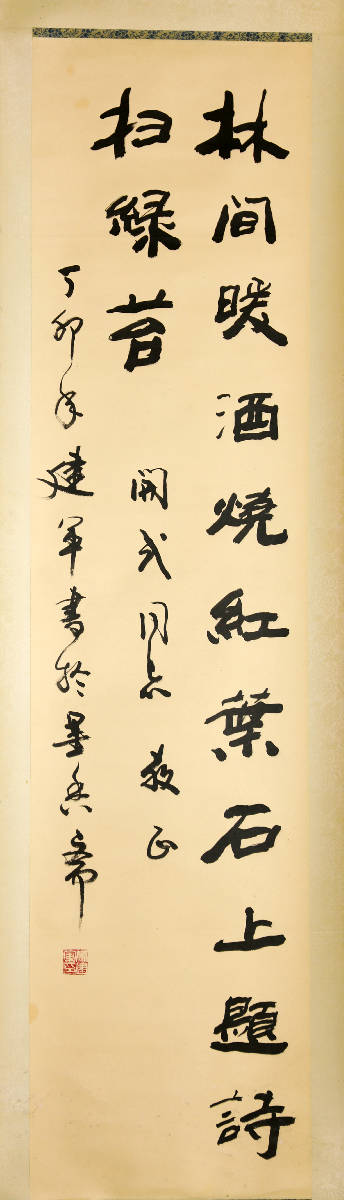 林間暖酒燒紅葉石上題詩
扫綠苔
開武同志 教正
丁卯年建军書於墨香斋